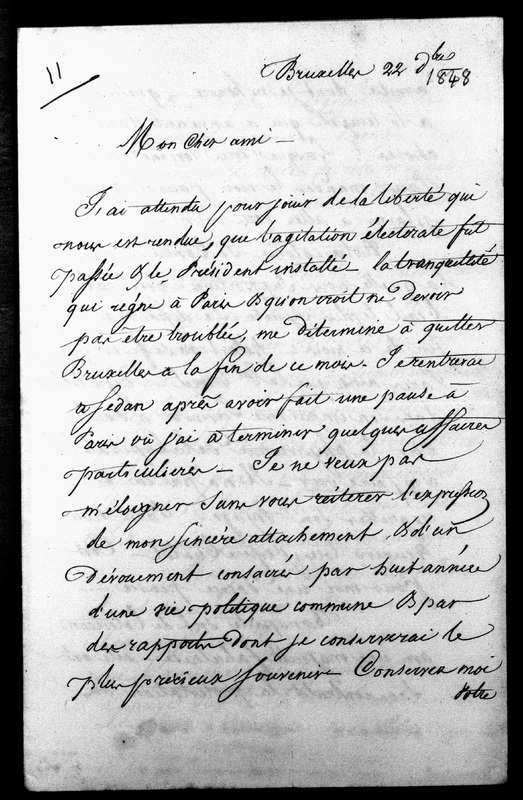 11
Bruxelles 22 Xbre
1848
Mon cher ami —
J'ai attendu pour jouir de la liberté qui
nous est rendue, que l'agitation électorale fut
passée & le Président installé — la tranquilité
qui règne à Paris & qu'on croit ne devoir
pas etre troublée, me détermine à quitter
Bruxelles à la fin de ce mois. Je rentrerai
à Sedan après avoir fait une pause à
Paris où j'ai à terminer quelques affaires
particulières — Je ne veux pas
m'éloigner sans vous réiterer l'expression
de mon sincère attachement & d'un
dévouement consacrés par huit années
d'une vie politique commune & par
des rapports dont je conserverai le
plus précieux souvenir. Conservez moi
votre